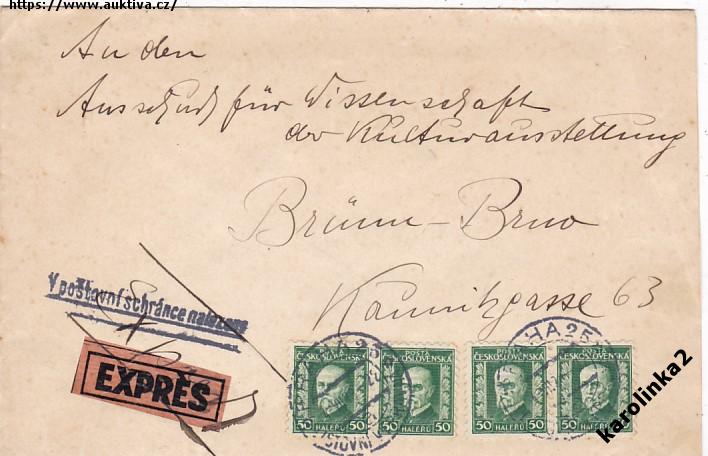 https://www.auktiva.cz/
An den
Ausschuß für Wissenschaft
der Kulturausstellung
Brünn-Brno
Kaunitzgasse 63
V poštovní schránce nalezeno
EXPRÈS
HA 25
POSTA
ČESKOSLOVENSKÁ
50 HALÉŘŮ 50
POSTA
ČESKOSLOVENSKÁ
50 HALÉŘŮ 50
POSTA
ČESKOSLOVENSKÁ
50 HALÉŘŮ 50
ČESKOSLOVENSKÁ
50 HALÉŘŮ 50
HA 25
karolinka2